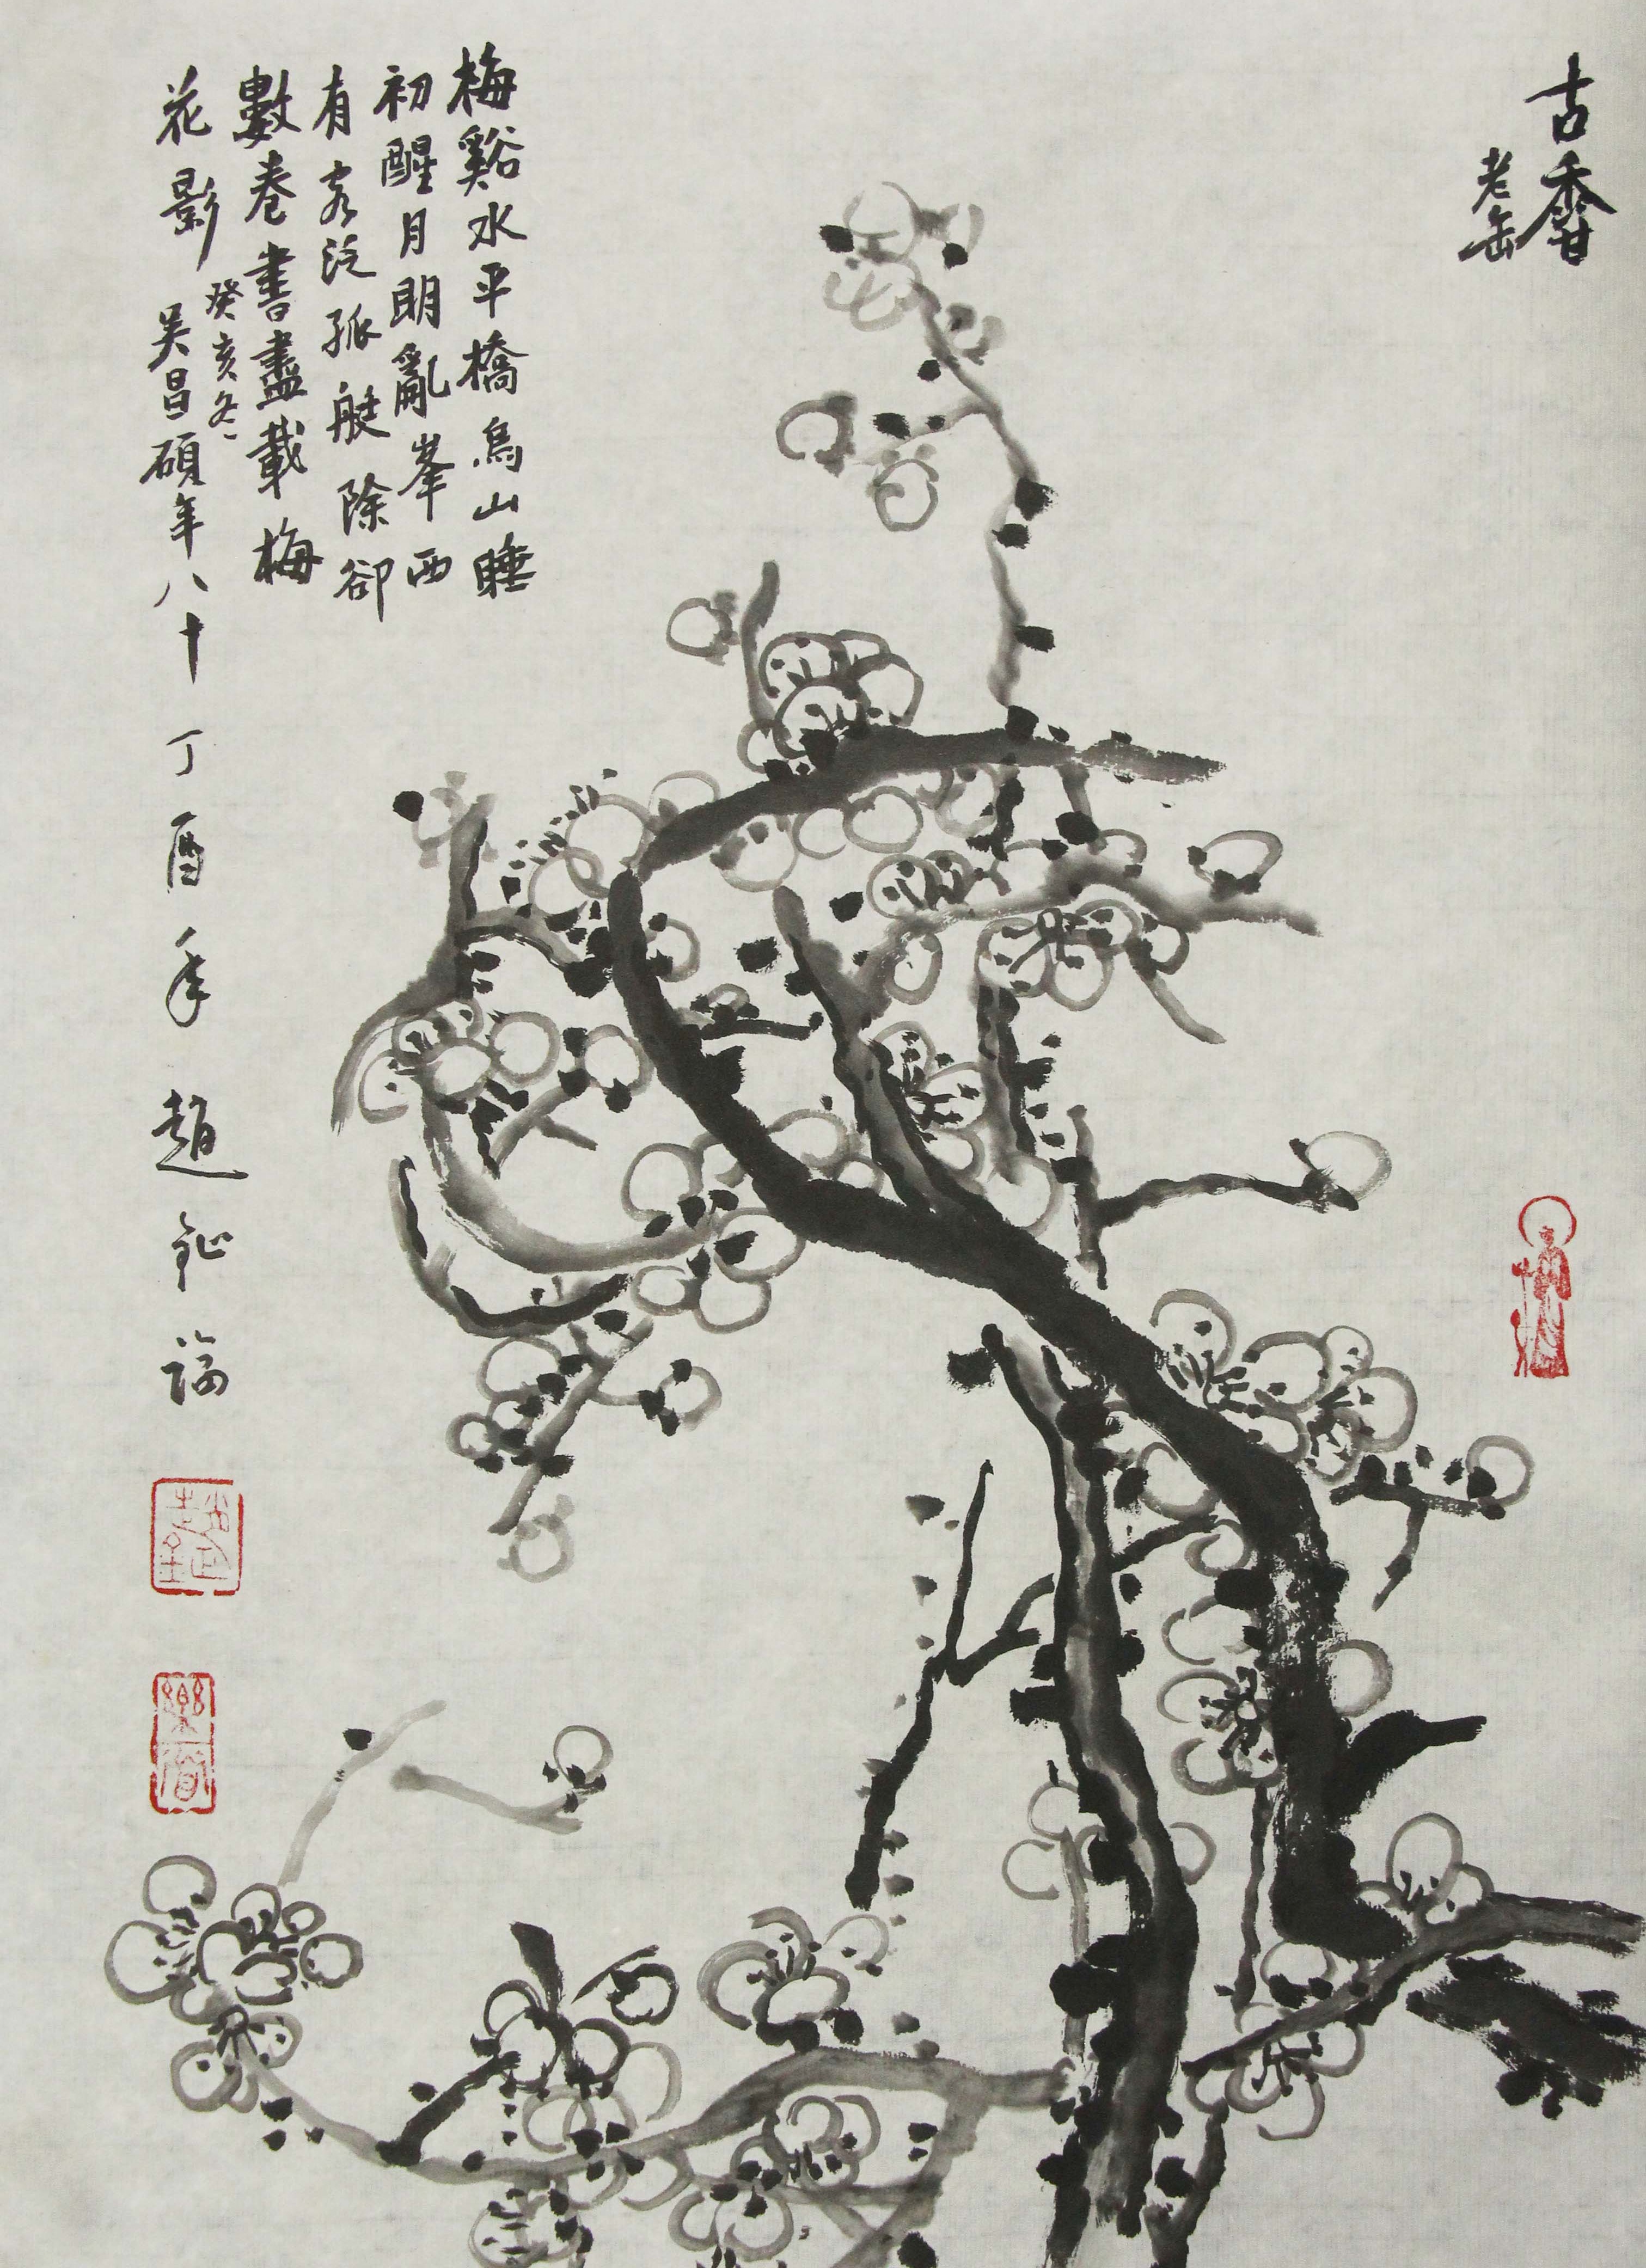 古香
老缶
梅谿水平橋烏山睡
初醒月明亂峯西
有客泛孤艇除卻
數卷書盡載梅
花影
癸亥冬
吳昌碩年八十 丁酉年 趙鉦臨